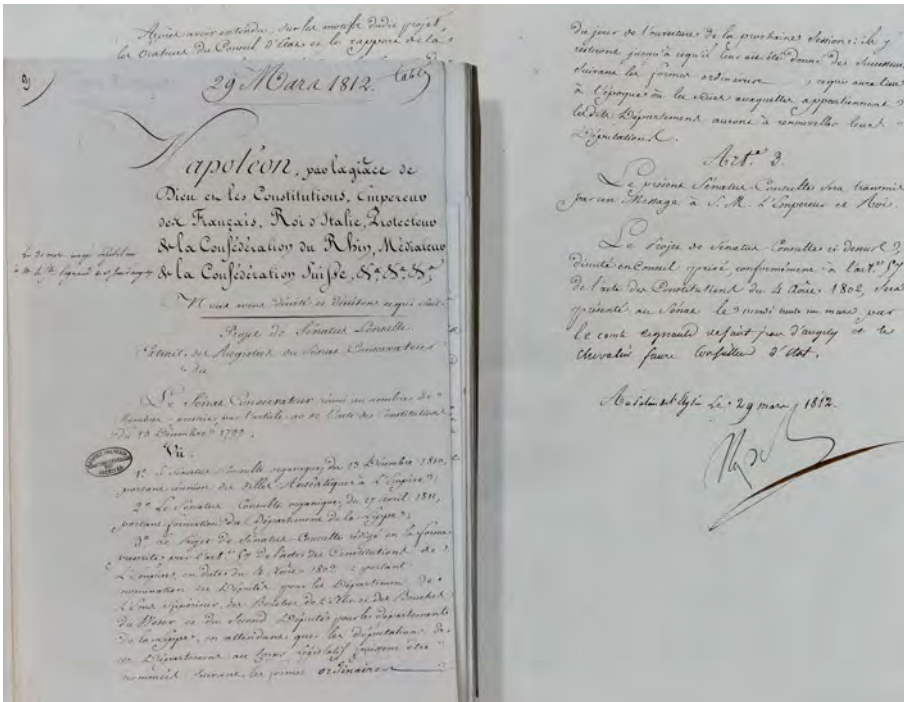 Après avoir entendu, sur les motifs dudit projet,
les Orateurs du Conseil d'Etat et le rapport de la
9)
29 Mars 1812.
Napoléon, par la grâce de
Dieu et les Constitutions, Empereur
des Français, Roi d'Italie, Protecteur
de la Confédération du Rhin, Médiateur
de la Confédération Suisse, &a &a &a
Nous avons décrété et décrétons ce qui suit.
Projet de Sénatus Consulte.
Extrait des Registres du Sénat Conservateur
du
Le Sénat Conservateur, réuni au nombre de
Membres prescrit par l'article 90 de l'acte des Constitutions
du 13 Décembre 1799.
Vu
1º Le Sénatus Consulte organique, du 13 Décembre 1810,
portant réunion des Villes Anséatiques à l'Empire;
2º Le Sénatus Consulte organique, du 27 avril 1811,
portant formation du Département de la Lippe;
3º Le Projet de Sénatus-Consulte rédigé en la forme
prescrite par l'art. 57 de l'acte des Constitutions de
l'Empire, en date du 4 Août 1802; portant
nomination des Députés pour les Départemens de
l'Ems supérieur, des Bouches de l'Elbe et des Bouches
du Weser et du Second Député pour le département
de la Lippe, en attendant que les députations de
ces Départemens au Corps Législatif puissent être
nommées suivant les formes ordinaires
du jour de l'ouverture de la prochaine Session: ils y
resteront jusqu'à ce qu'il leur ait été donné des Successeurs
suivant les formes ordinaires, ce qui aura lieu
à l'époque où les Séries auxquelles appartiennent
les dits Départemens auront à renouveller leurs
Députations.
Art. 3.
Le présent Sénatus-Consulte sera transmis
par un Message à S. M. l'Empereur et Roi.
Le Projet de Sénatus-Consulte ci dessus
discuté en Conseil privé conformément à l'art. 57
de l'acte des Constitutions du 4 Août 1802, sera
présenté au Sénat le mardi trente un mars par
le comte regnault de saint jean d'angely et le
chevalier faure Conseiller d'Etat.
Le 29 mars 1812.